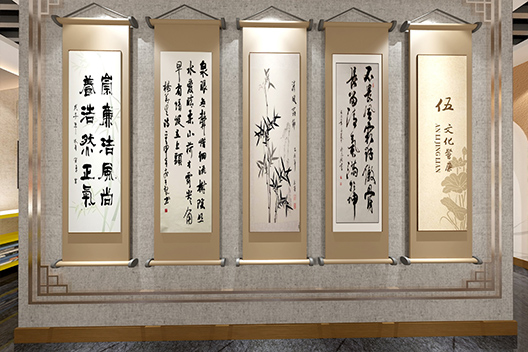 崇廉洁风尚
養浩然正氣
泉眼无聲惜细流树阴照
水爱晴柔小荷才露尖尖角
早有蜻蜓立上头
不要人夸好颜色
只留清氣满乾坤
伍
文化誉廉
ANLIJINGLIAN